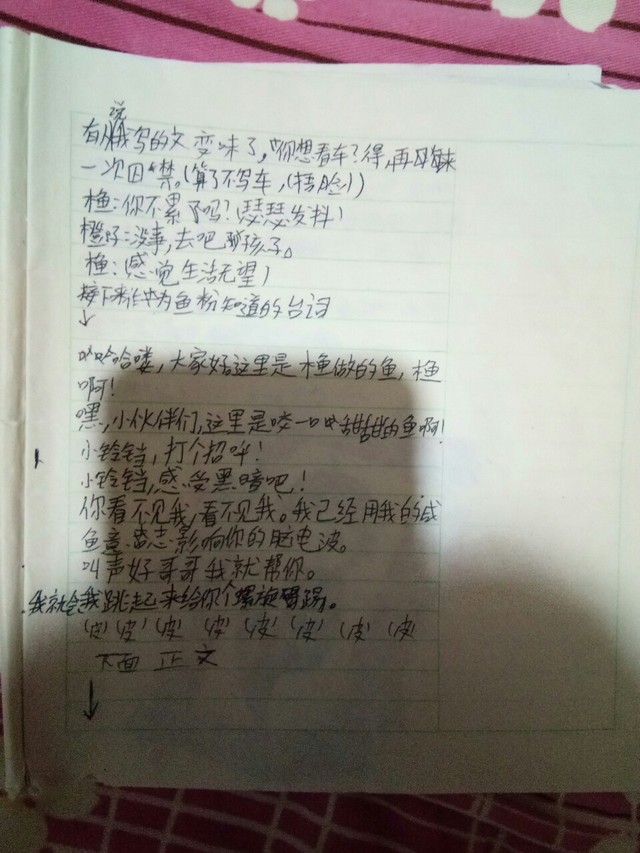 有人说我写的文变味了,你想看车?得,再来
一次囚禁。(算了不写车,(捂脸))
木鱼:你不累了吗?(瑟瑟发抖)
橙子:没事,去吧孩子。
木鱼:(感觉生活无望)
接下来作为鱼粉知道的台词
↓
哈哈哈喽,大家好这里是木鱼做的鱼,木鱼
啊!
嘿,小伙伴们,这里是咬一口甜甜的鱼啊!
小铃铛,打个招呼!
小铃铛,感受黑暗吧!
你看不见我,看不见我。我已经用我的咸
鱼意志影响你的脑电波。
叫声好哥哥我就帮你。
我就会跳起来给你个螺旋踢。
(皮)(皮)(皮)(皮)(皮)(皮)(皮)(皮)
下面 正文
↓